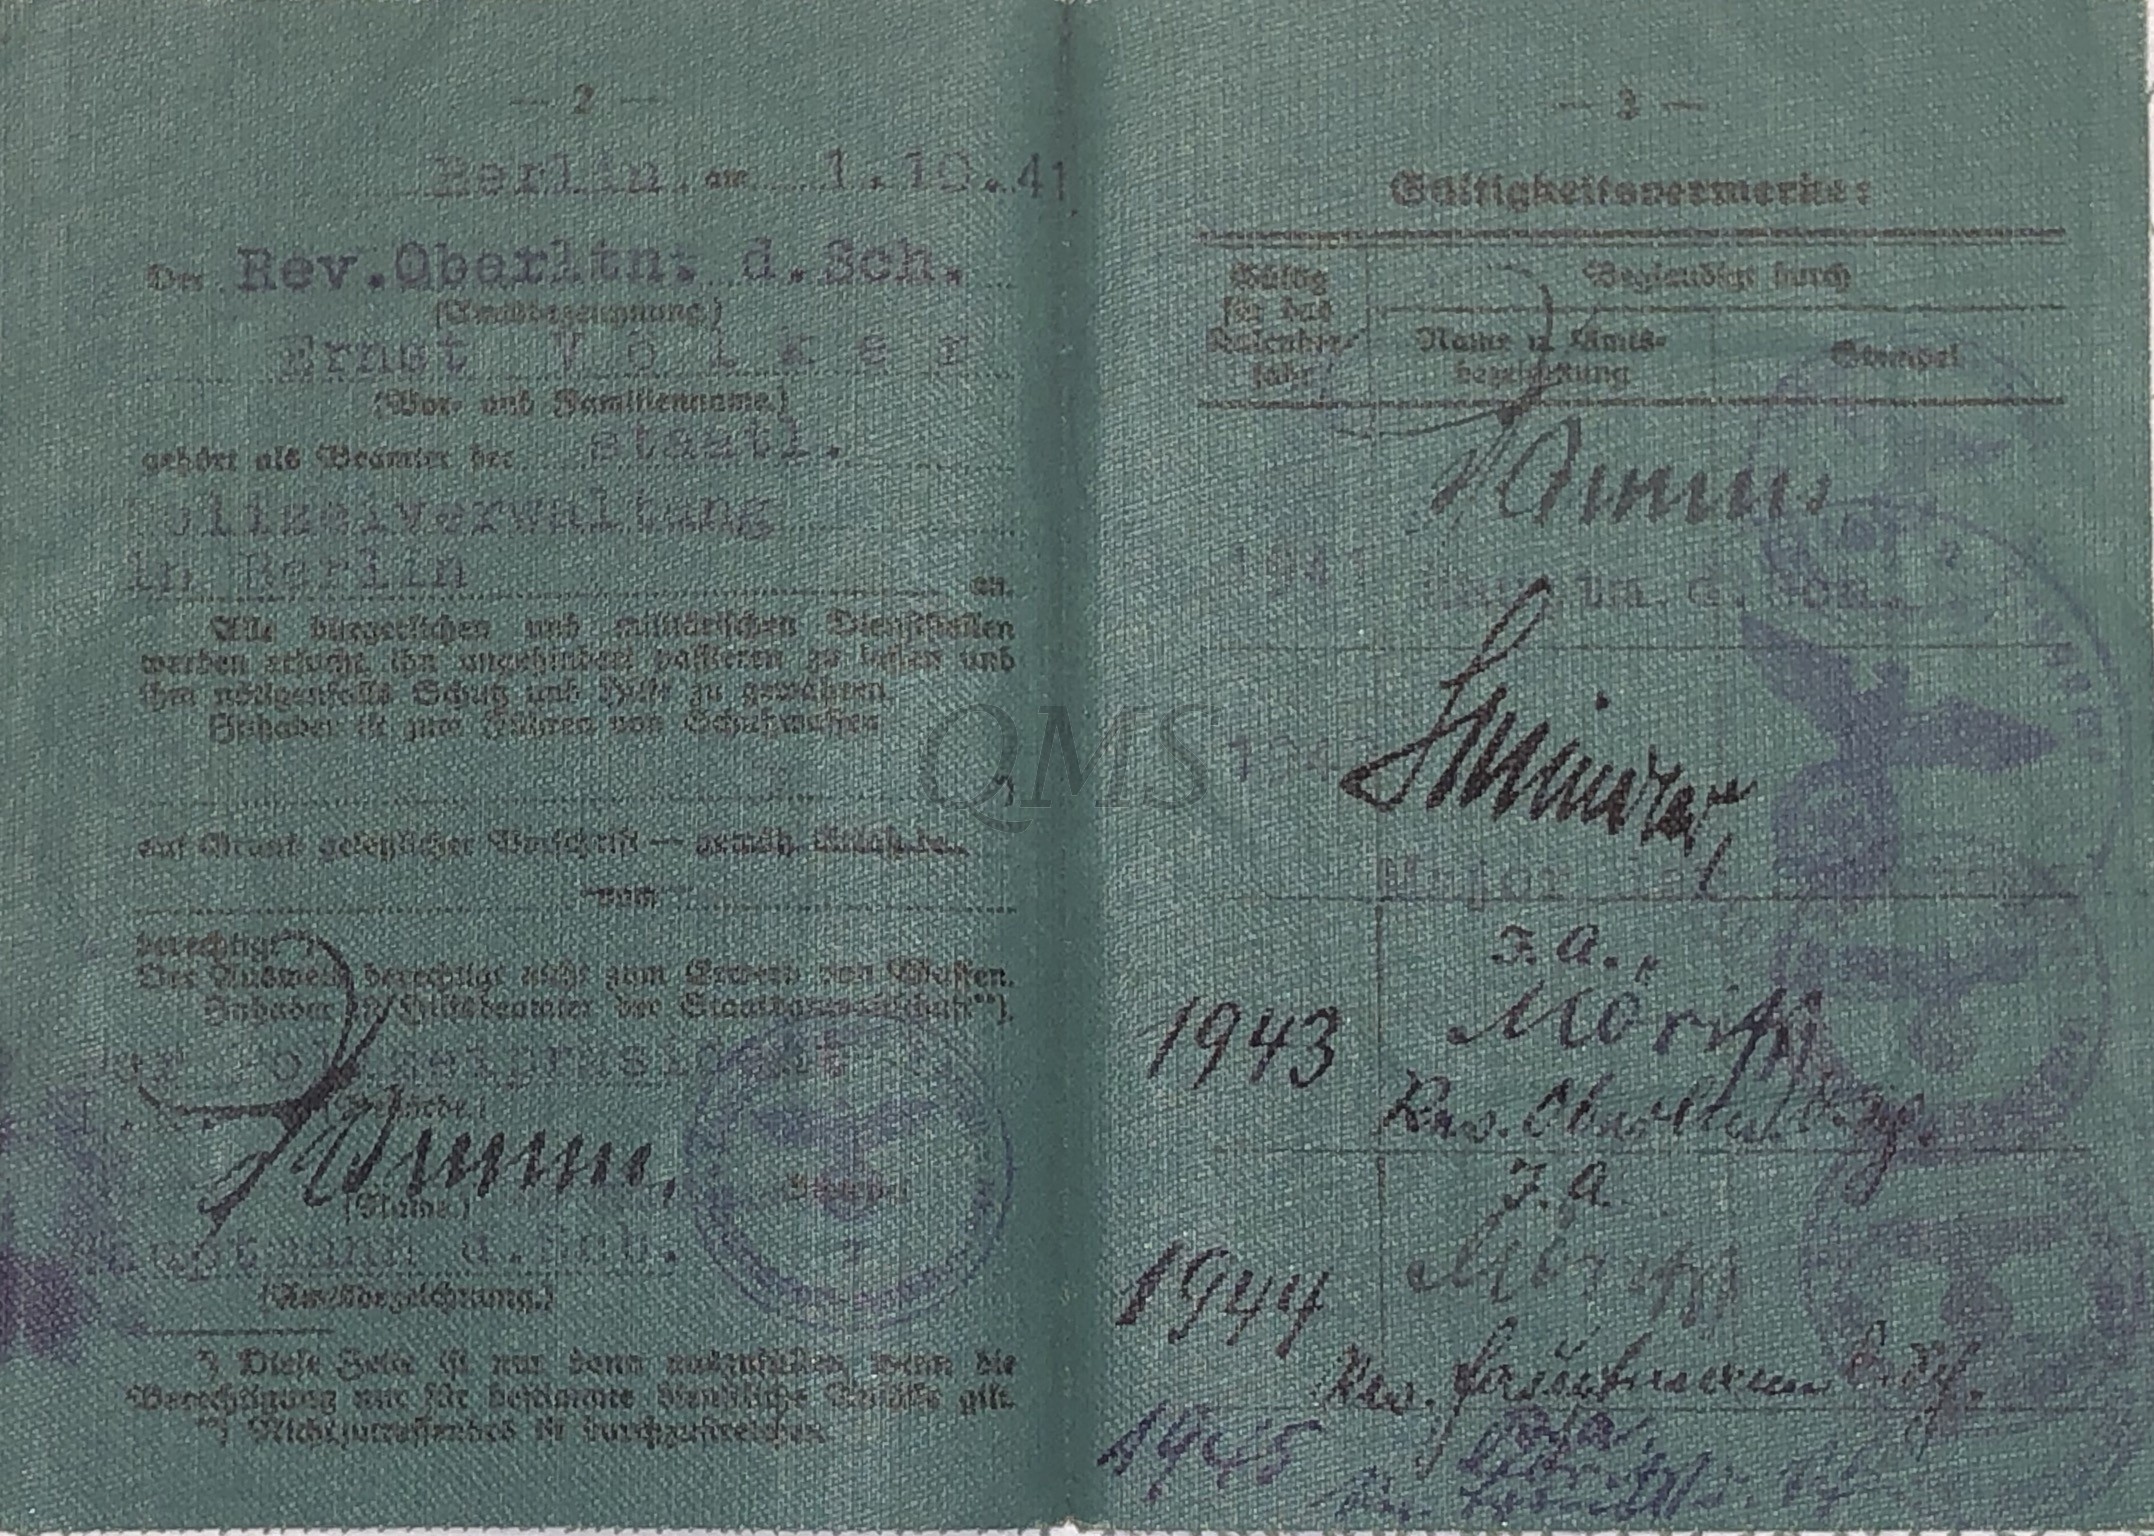 — 2 —
Berlin, am 1.10.41
Der Rev.Oberltn. d.Sch.
(Amtsbezeichnung)
Ernst Völker
(Vor- und Familienname.)
gehört als Beamter der staatl.
Polizeiverwaltung
in Berlin an.
Alle bürgerlichen und militärischen Dienststellen
werden ersucht, ihn ungehindert passieren zu lassen und
ihm nötigenfalls Schutz und Hilfe zu gewähren.
Inhaber ist zum Führen von Schußwaffen
*)
auf Grund gesetzlicher Vorschrift — gemäß
vom
berechtigt**).
Der Ausweis berechtigt nicht zum Erwerb von Waffen.
Inhaber ist Hilfsbeamter der Staatsanwaltschaft**).
Der Polizeipräsident
(Behörde.)
(Name.)
Stempel
Hauptmann d.Sch.
(Amtsbezeichnung.)
*) Diese Zeile ist nur dann auszufüllen, wenn die
Berechtigung nur für bestimmte dienstliche Anlässe gilt.
**) Nichtzutreffendes ist durchzustreichen.
— 3 —
Gültigkeitsvermerke:
Gültig für das Kalenderjahr
Beglaubigt durch
Name u. Amtsbezeichnung
Stempel
1941
d. Sch.
194
Major
QMS
1943
I.A.
Möritz
Rev. Oberltn.
1944
I.A.
Möritz
Rev. Hauptmann d. Sch.
1945